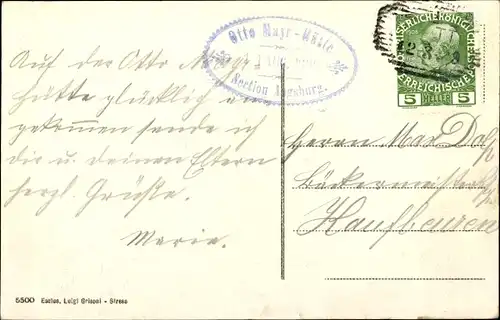 Auf der Otto Mayr
Hütte glücklich an
gekommen sende ich
dir u. deinen Eltern
herzl. Grüße.
Marie.
Otto Mayr-Hütte
Section Augsburg.
KAISERLICHEKÖNIGLICHE
ÖSTERREICHISCHE
5 HELLER 5
Herrn Max
Bäckermeister
Kaufbeuren
5500 Luigi Grisoni - Stresa